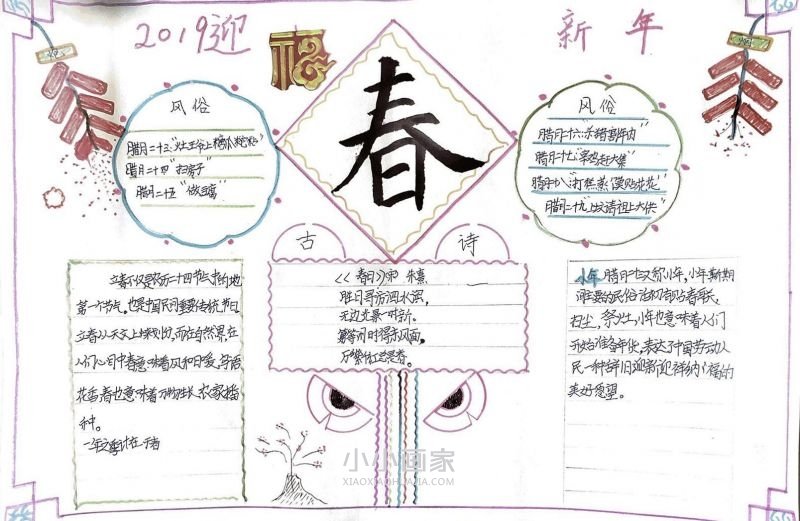 2019迎
新年
福
春
风俗
腊月二十三："灶王爷上
腊月二十四"扫房子"
腊月二十五"做豆腐"
风俗
腊月二十六："杀猪割年肉"
腊月二十七："宰鸡赶大集"
腊月二十八："打糕蒸馍贴花花"
腊月二十九"上坟请祖上大供"
古诗
《春日》宋 朱熹
胜日寻芳泗水滨，
无边光景一时新。
等闲识得东风面，
万紫千红总是春。
立春不仅是农历二十四节气中的
第一个节气，也是中国民间重要传统节日
立春从天文上来划的，而在自然界、在
人们心目中春意味着风和日暖，鸟语
花香，春也意味着万物生长，农家播
种。
一年之季在于春
小年 腊月二十七又称小年，小年期
主要的民俗活动有贴春联、
扫尘，祭灶，小年也意味着人们
开始准备年货，表达了中国劳动人
民一种辞旧迎新迎祥纳福的
美好愿望。
小小画家
XIAOXIAOHUAJIA.COM